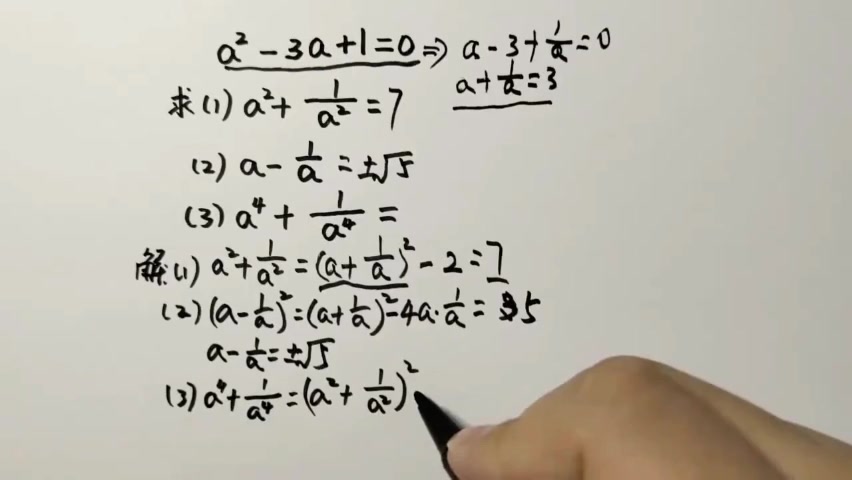 a² - 3a + 1 = 0 ⇒ a - 3 + 1/a = 0
a + 1/a = 3
求(1) a² + 1/a² = 7
(2) a - 1/a = ±√5
(3) a⁴ + 1/a⁴ =
解(1) a² + 1/a² = (a + 1/a)² - 2 = 7
(2) (a - 1/a)² = (a + 1/a)² - 4a·1/a = 5
a - 1/a = ±√5
(3) a⁴ + 1/a⁴ = (a² + 1/a²)²